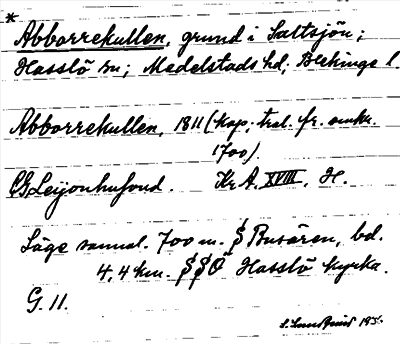 *
Abborrekullen, grund i Saltsjön;
Hasslö sn; Medelstads hd; Blekinge l.
Abborrekullen, 1811 (kop, trol. fr. omkr.
1700).
CG Leijonhufvud. Kr.A. XVIII. H.
Läge sannol. 700 m. S Busären, bd.
4,4 km. SSÖ Hasslö kyrka.
G. 11.